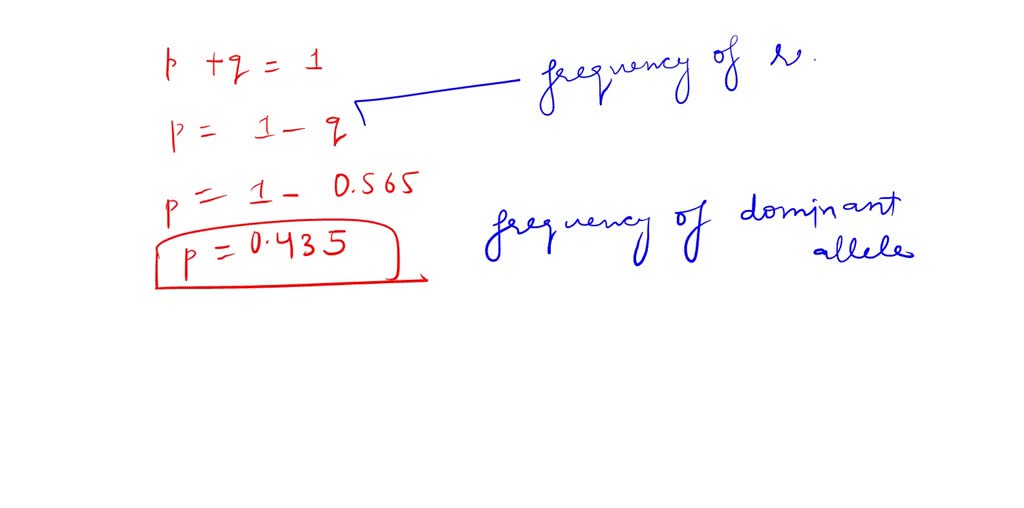 p + q = 1
frequency of r.
p = 1 - q
p = 1 - 0.565
p = 0.435
frequency of dominant
allele